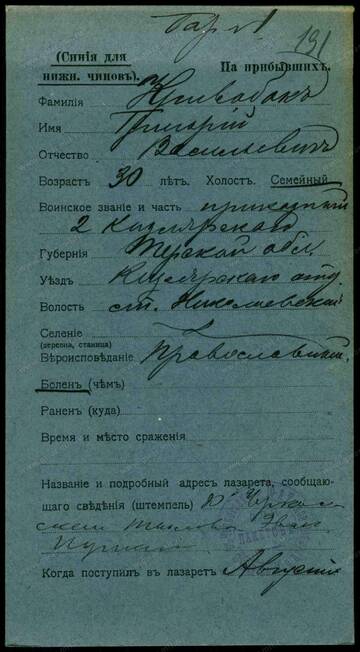 131
(Синія для
нижн. чиновъ).
На прибывшихъ.
Фамилія Кривобокъ
Имя Григорій
Отчество Васильевичъ
Возрастъ 30 лѣтъ. Холост. Семейный
Воинское званіе и часть приказный
2 Кизлярского
Губернія Терской обл.
Уѣздъ Кизлярскаго отд.
Волость ст. Николаевской
Селеніе
(деревня, станица)
Вѣроисповѣданіе Православный.
Боленъ (чѣмъ)
Раненъ (куда)
Время и мѣсто сраженія
Названіе и подробный адресъ лазарета, сообщаю-
щаго свѣдѣнія (штемпель)
Когда поступилъ въ лазаретъ Августа